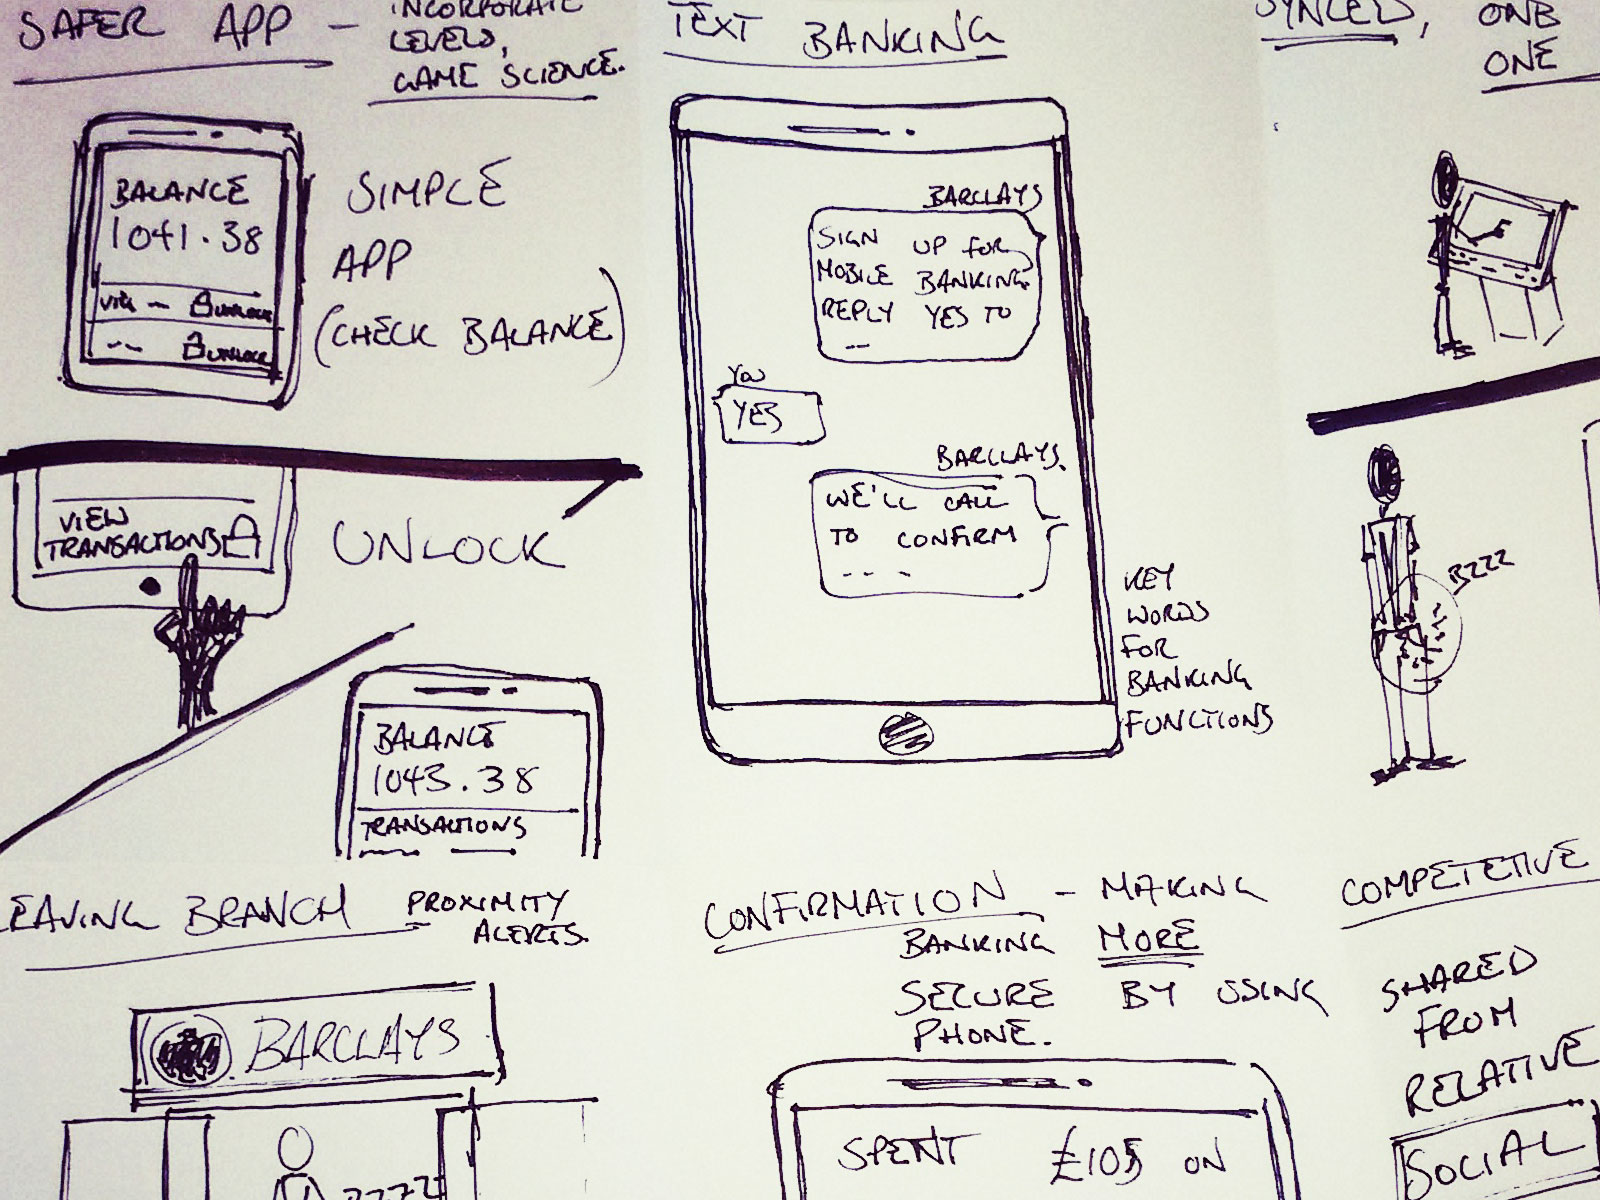 SAFER APP - INCORPORATE
LEVELS,
GAME SCIENCE.
BALANCE
1041.38
UNLOCK
UNLOCK
SIMPLE
APP
(CHECK BALANCE)
VIEW
TRANSACTIONS
UNLOCK
BALANCE
1043.38
TRANSACTIONS
TEXT BANKING
BARCLAYS
SIGN UP FOR
MOBILE BANKING.
REPLY YES TO
YOU
YES
BARCLAYS.
WE'LL CALL
TO CONFIRM
KEY
WORDS
FOR
BANKING
FUNCTIONS
SYNCED, ONE
ONE
BZZZ
LEAVING BRANCH - PROXIMITY
ALERTS.
BARCLAYS
BZZZZ
CONFIRMATION - MAKING
BANKING MORE
SECURE BY USING
PHONE.
SPENT £105 ON
COMPETETIVE
SHARED
FROM
RELATIVE
SOCIAL